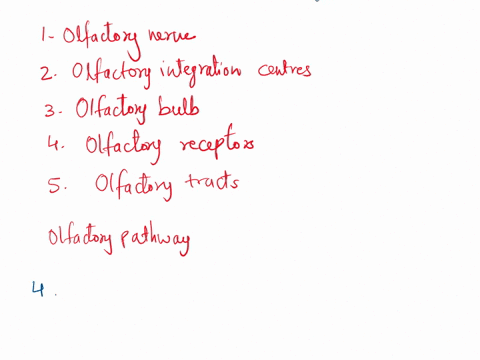 1- Olfactory nerve
2. Olfactory integration centres
3. Olfactory bulb
4. Olfactory receptors
5. Olfactory tracts
Olfactory pathway
4.